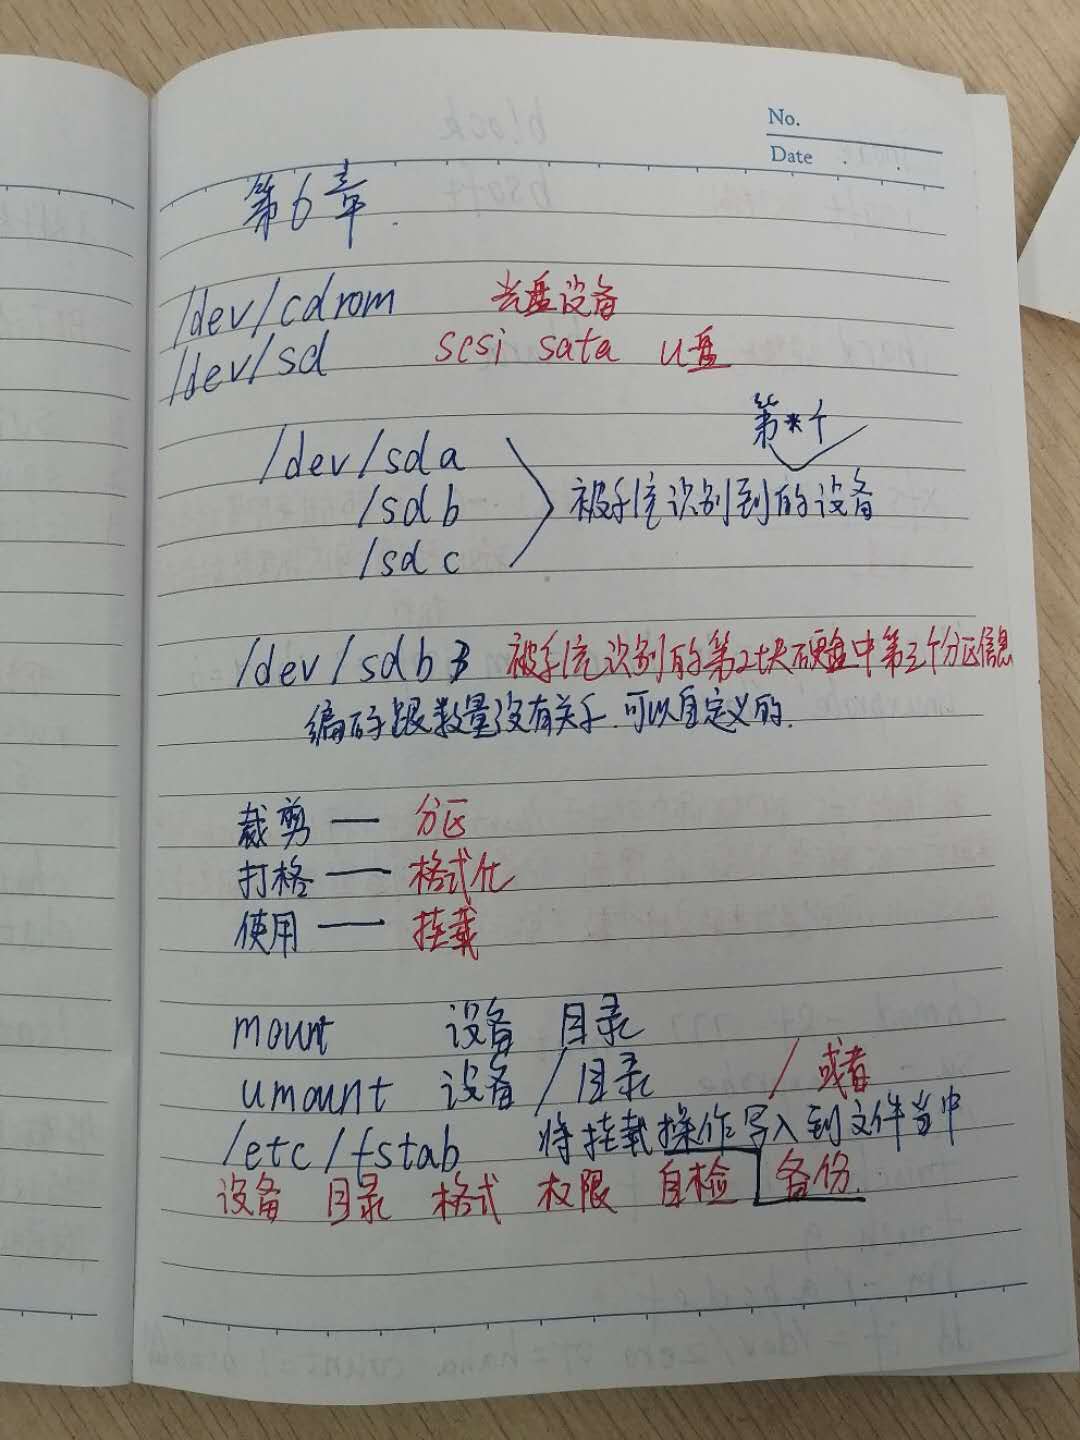 No.
Date
第6章.
/dev/cdrom 光盘设备
/dev/sd scsi sata u盘
第*个
/dev/sda
/sdb 被系统识别到的设备
/sdc
/dev/sdb3 被系统识别的第2块硬盘中第三个分区信息
编码跟数量没有关系.可以自定义的.
裁剪 — 分区
打格 — 格式化
使用 — 挂载
mount 设备 目录
umount 设备/目录 / 或者
/etc/fstab 将挂载操作写入到文件当中
设备 目录 格式 权限 自检 备份.